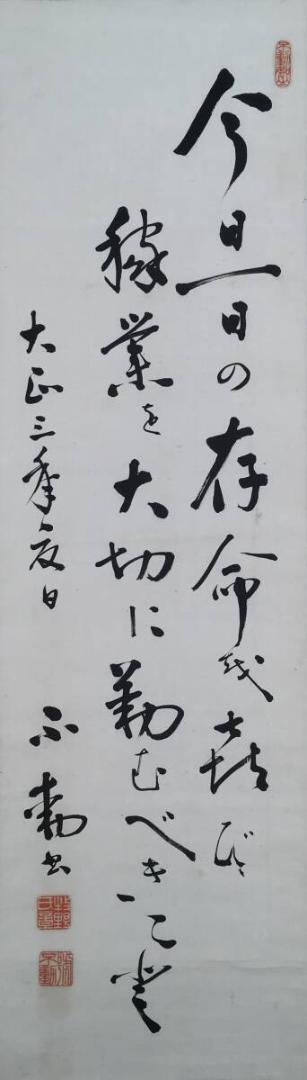 今日一日の存命を喜び
稼業を大切に勤むべきこと
大正三年夏日
不動書